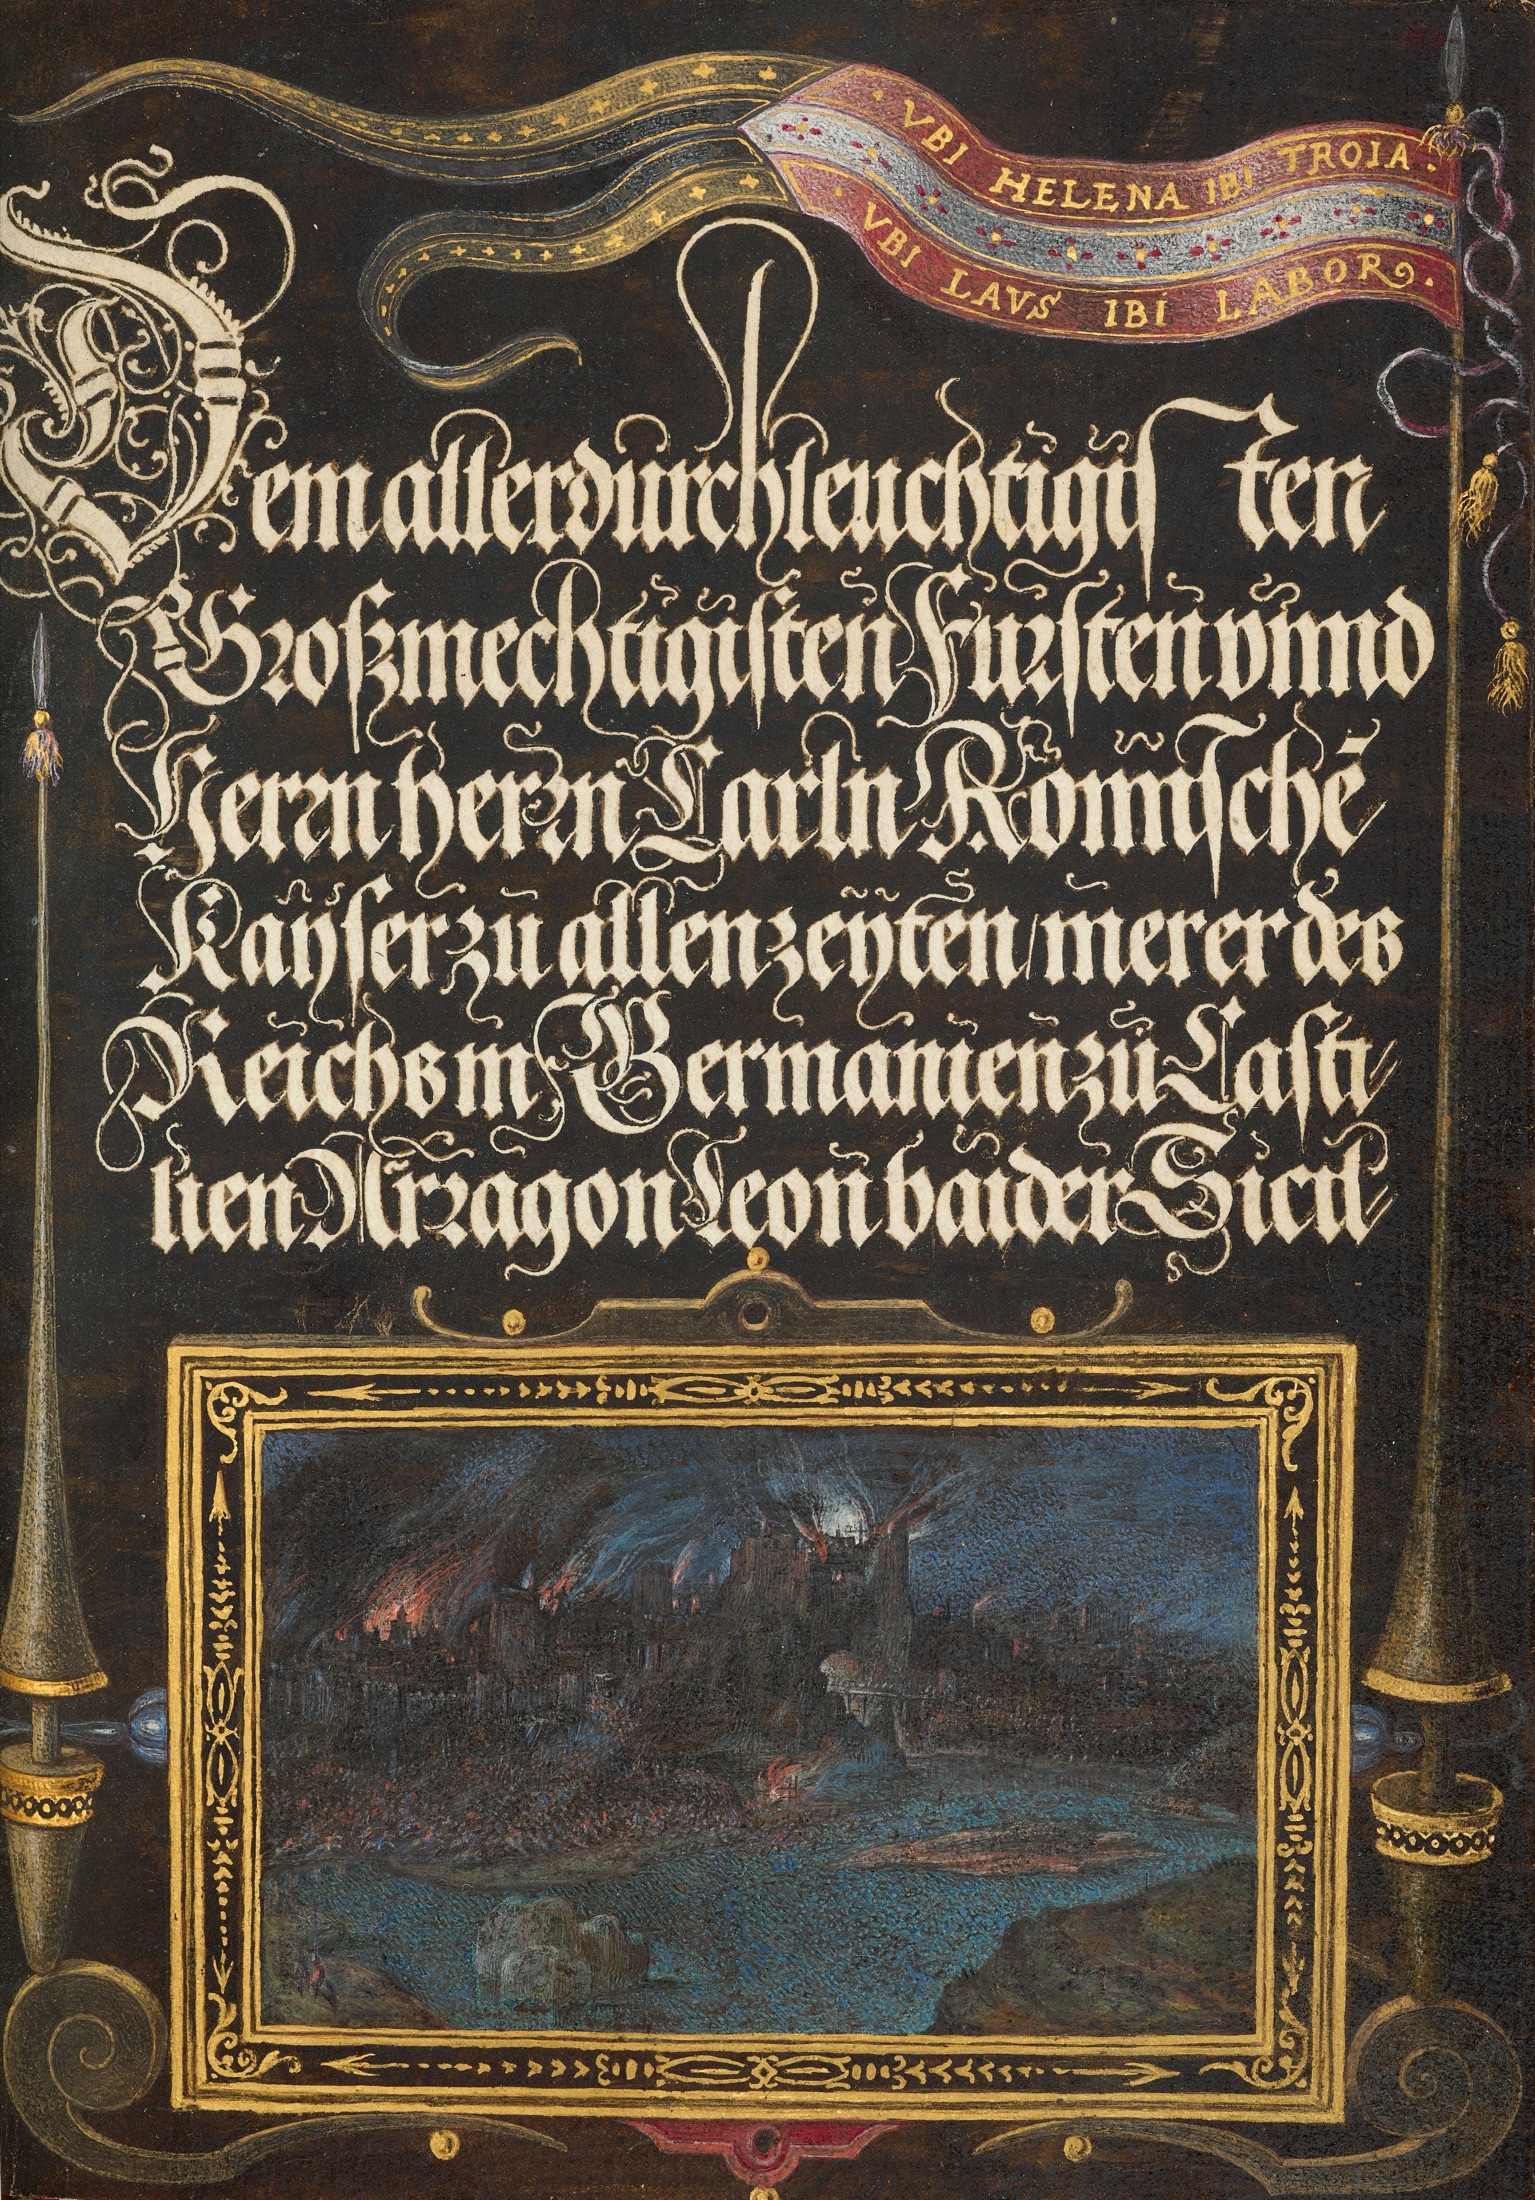 VBI HELENA IBI TROIA.
VBI LAVS IBI LABOR.
Dem allerdurchleuchtigisten
Großmechtigisten Fürsten vnnd
Herrn herrn Carln Römischē
Kaÿser zu allen zeÿten / merer des
Reichs in Germanien zŭ Casti
lien Arragon Leon baider Sicil